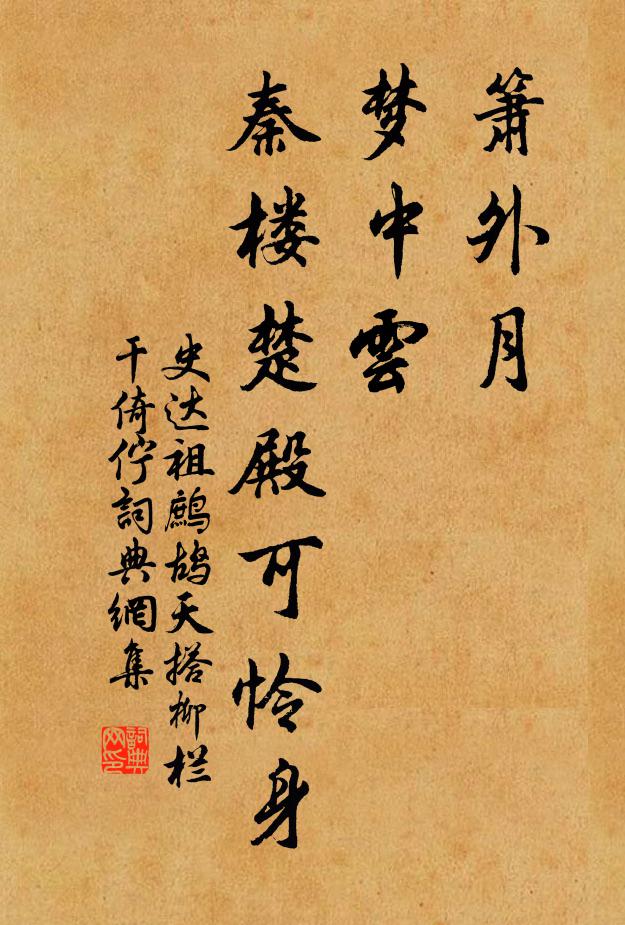 箫外月
梦中雲
秦楼楚殿可怜身
史达祖鹧鸪天搭柳栏
干倚伫詞典網集
詞典网印